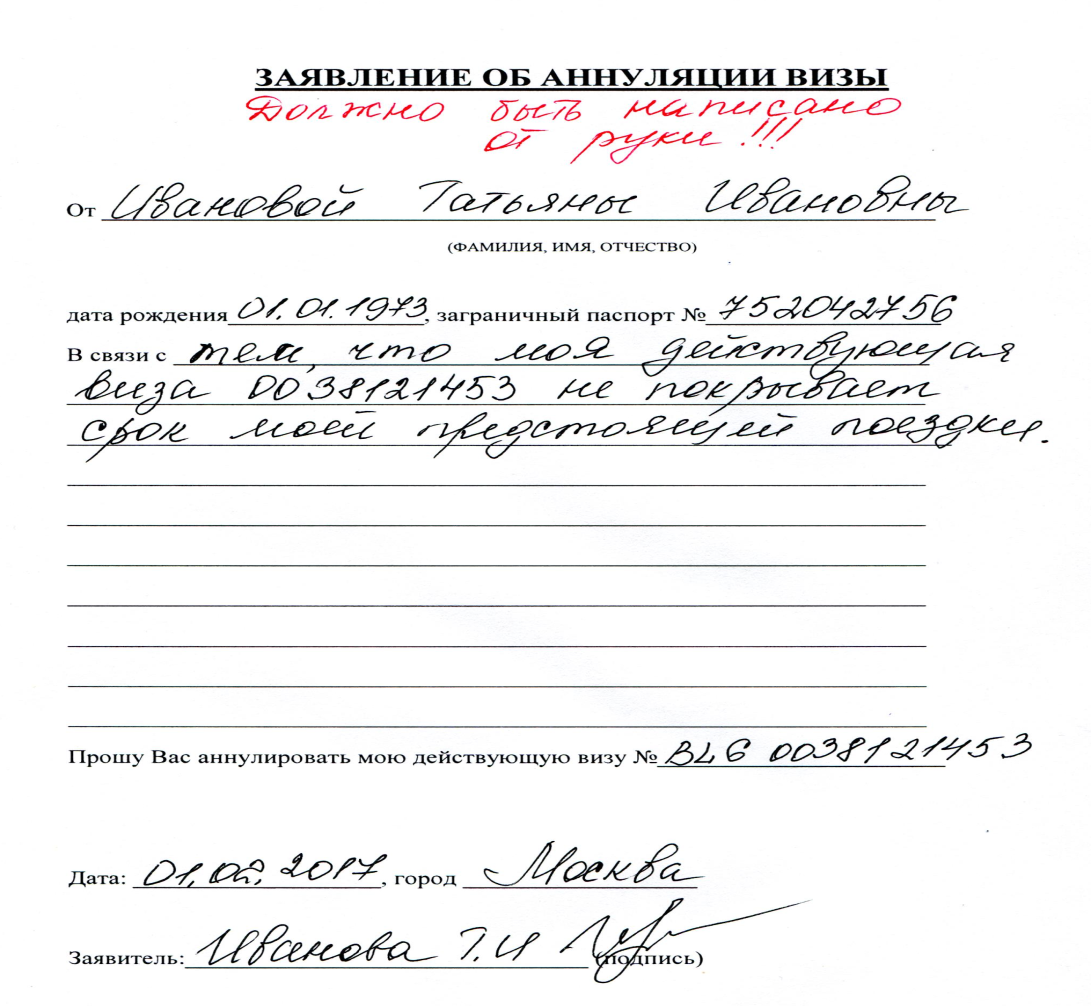 ЗАЯВЛЕНИЕ ОБ АННУЛЯЦИИ ВИЗЫ
Должно быть написано
от руки!!!
От Ивановой Татьяны Ивановны
(ФАМИЛИЯ, ИМЯ, ОТЧЕСТВО)
дата рождения 01.01.1973, заграничный паспорт № 752042756
В связи с тем, что моя действующая
виза 0038121453 не покрывает
срок моей предстоящей поездки.
Прошу Вас аннулировать мою действующую визу № BLG 0038121453
Дата: 01.02.2017, город Москва
Заявитель: Иванова Т.И (подпись)